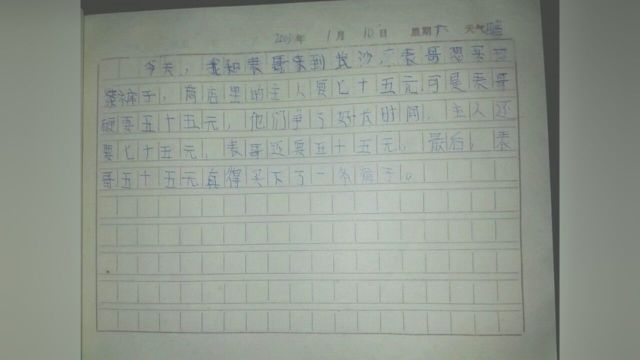 2009年 1月 10日 星期六 天气晴
今天,我和表哥来到长沙,表哥想买
裤子,商店里的主人要七十五元可是表哥
硬要五十五元,他们争了好长时间,主人还
要七十五元,表哥还要五十五元,最后,表
哥五十五元真得买下了一条裤子。